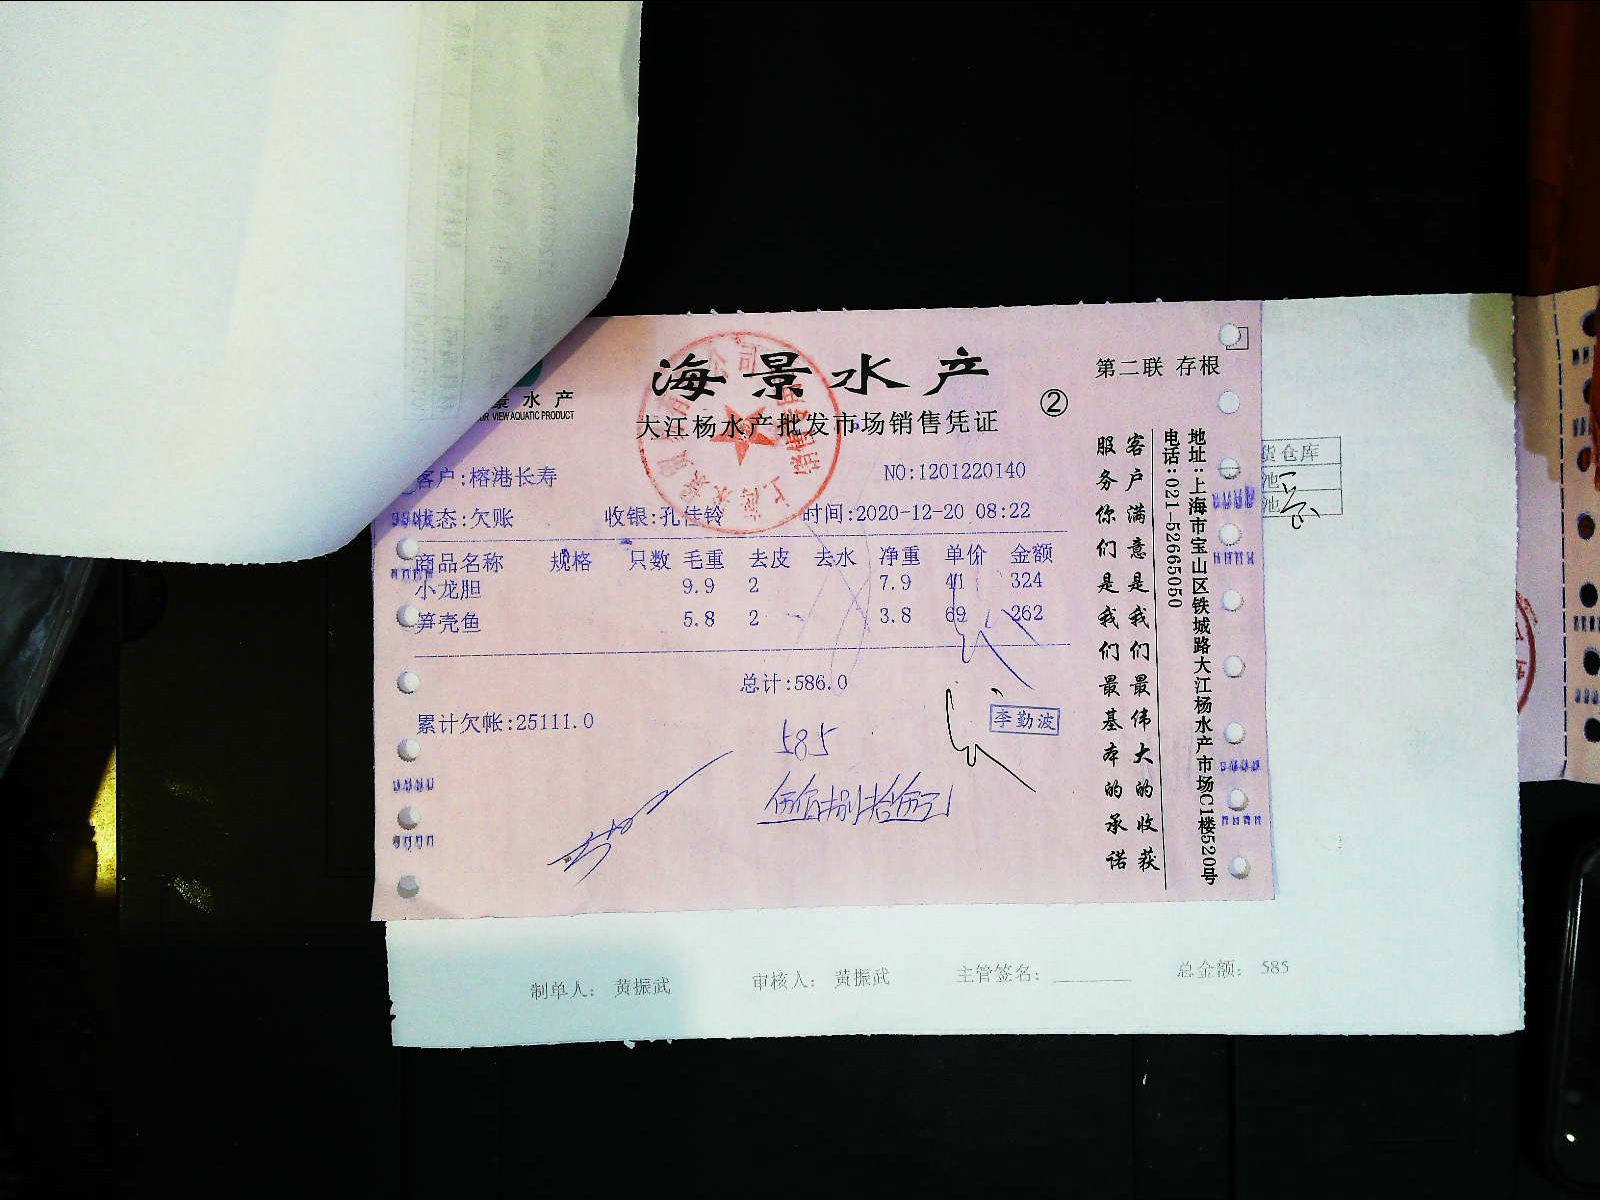 海景水产
第二联 存根
景水产
VIEW AQUATIC PRODUCT
大江杨水产批发市场销售凭证
②
客户:榕港长寿
NO:1201220140
状态:欠账 收银:孔佳铃 时间:2020-12-20 08:22
商品名称 规格 只数 毛重 去皮 去水 净重 单价 金额
小龙胆 9.9 2 7.9 41 324
笋壳鱼 5.8 2 3.8 69 262
总计:586.0
累计欠帐:25111.0
李勤波
585
伍佰捌拾伍元
客户满意是我们最伟大的收获
服务你们是我们最基本的承诺
地址:上海市宝山区铁城路大江杨水产市场C1楼520号
电话:021-52665050
货仓库
池
池
制单人: 黄振武 审核人: 黄振武 主管签名: 总金额: 585